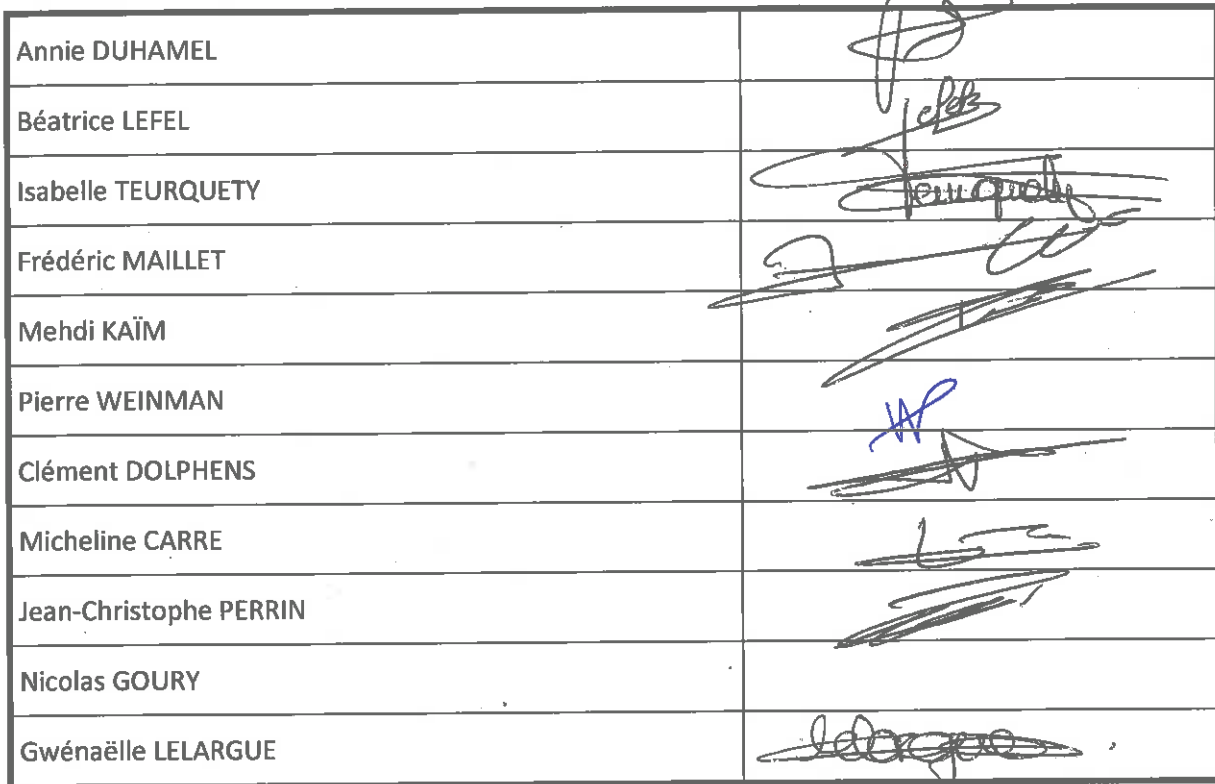 Annie DUHAMEL
Béatrice LEFEL
Isabelle TEURQUETY
Frédéric MAILLET
Mehdi KAÏM
Pierre WEINMAN
Clément DOLPHENS
Micheline CARRE
Jean-Christophe PERRIN
Nicolas GOURY
Gwénaëlle LELARGUE